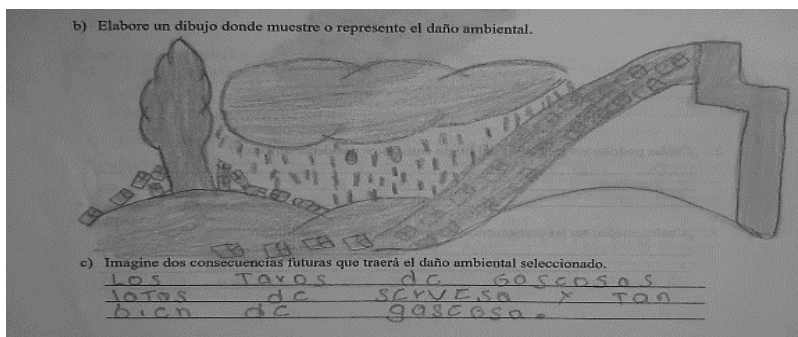 b) Elabore un dibujo donde muestre o represente el daño ambiental.
c) Imagine dos consecuencias futuras que traerá el daño ambiental seleccionado.
Los Taros de Goscosas
lotas de servesa y Tan
bien de gascosa.